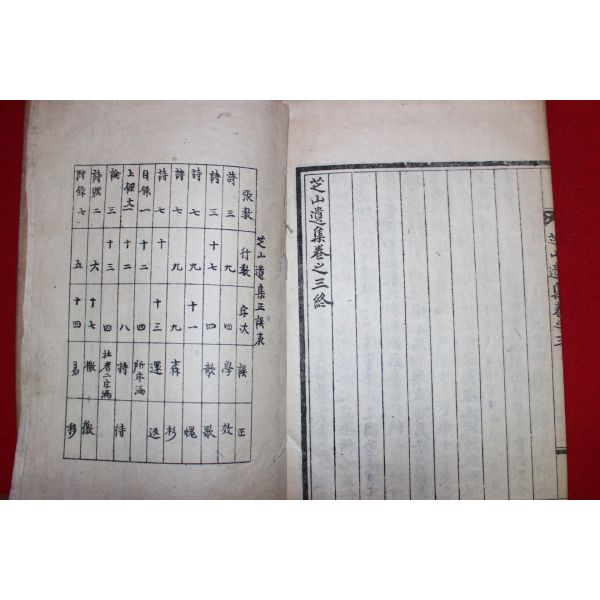 芝山遺集卷之三
芝山遺集卷之三終
芝山遺集正誤表
張數 行數 字次 誤 正
詩三 九 四 學 效
詩三 十七 四 歌
詩七 九 十一 愧
詩七 九 九 森 杉
詩七 十 十三 還 返
目錄一 十二 四 所字漏
上樑文一 十二 八 持 待
論三 十三 四 社者二字漏
詩賦二 六 十七
附錄七 五 十四 易